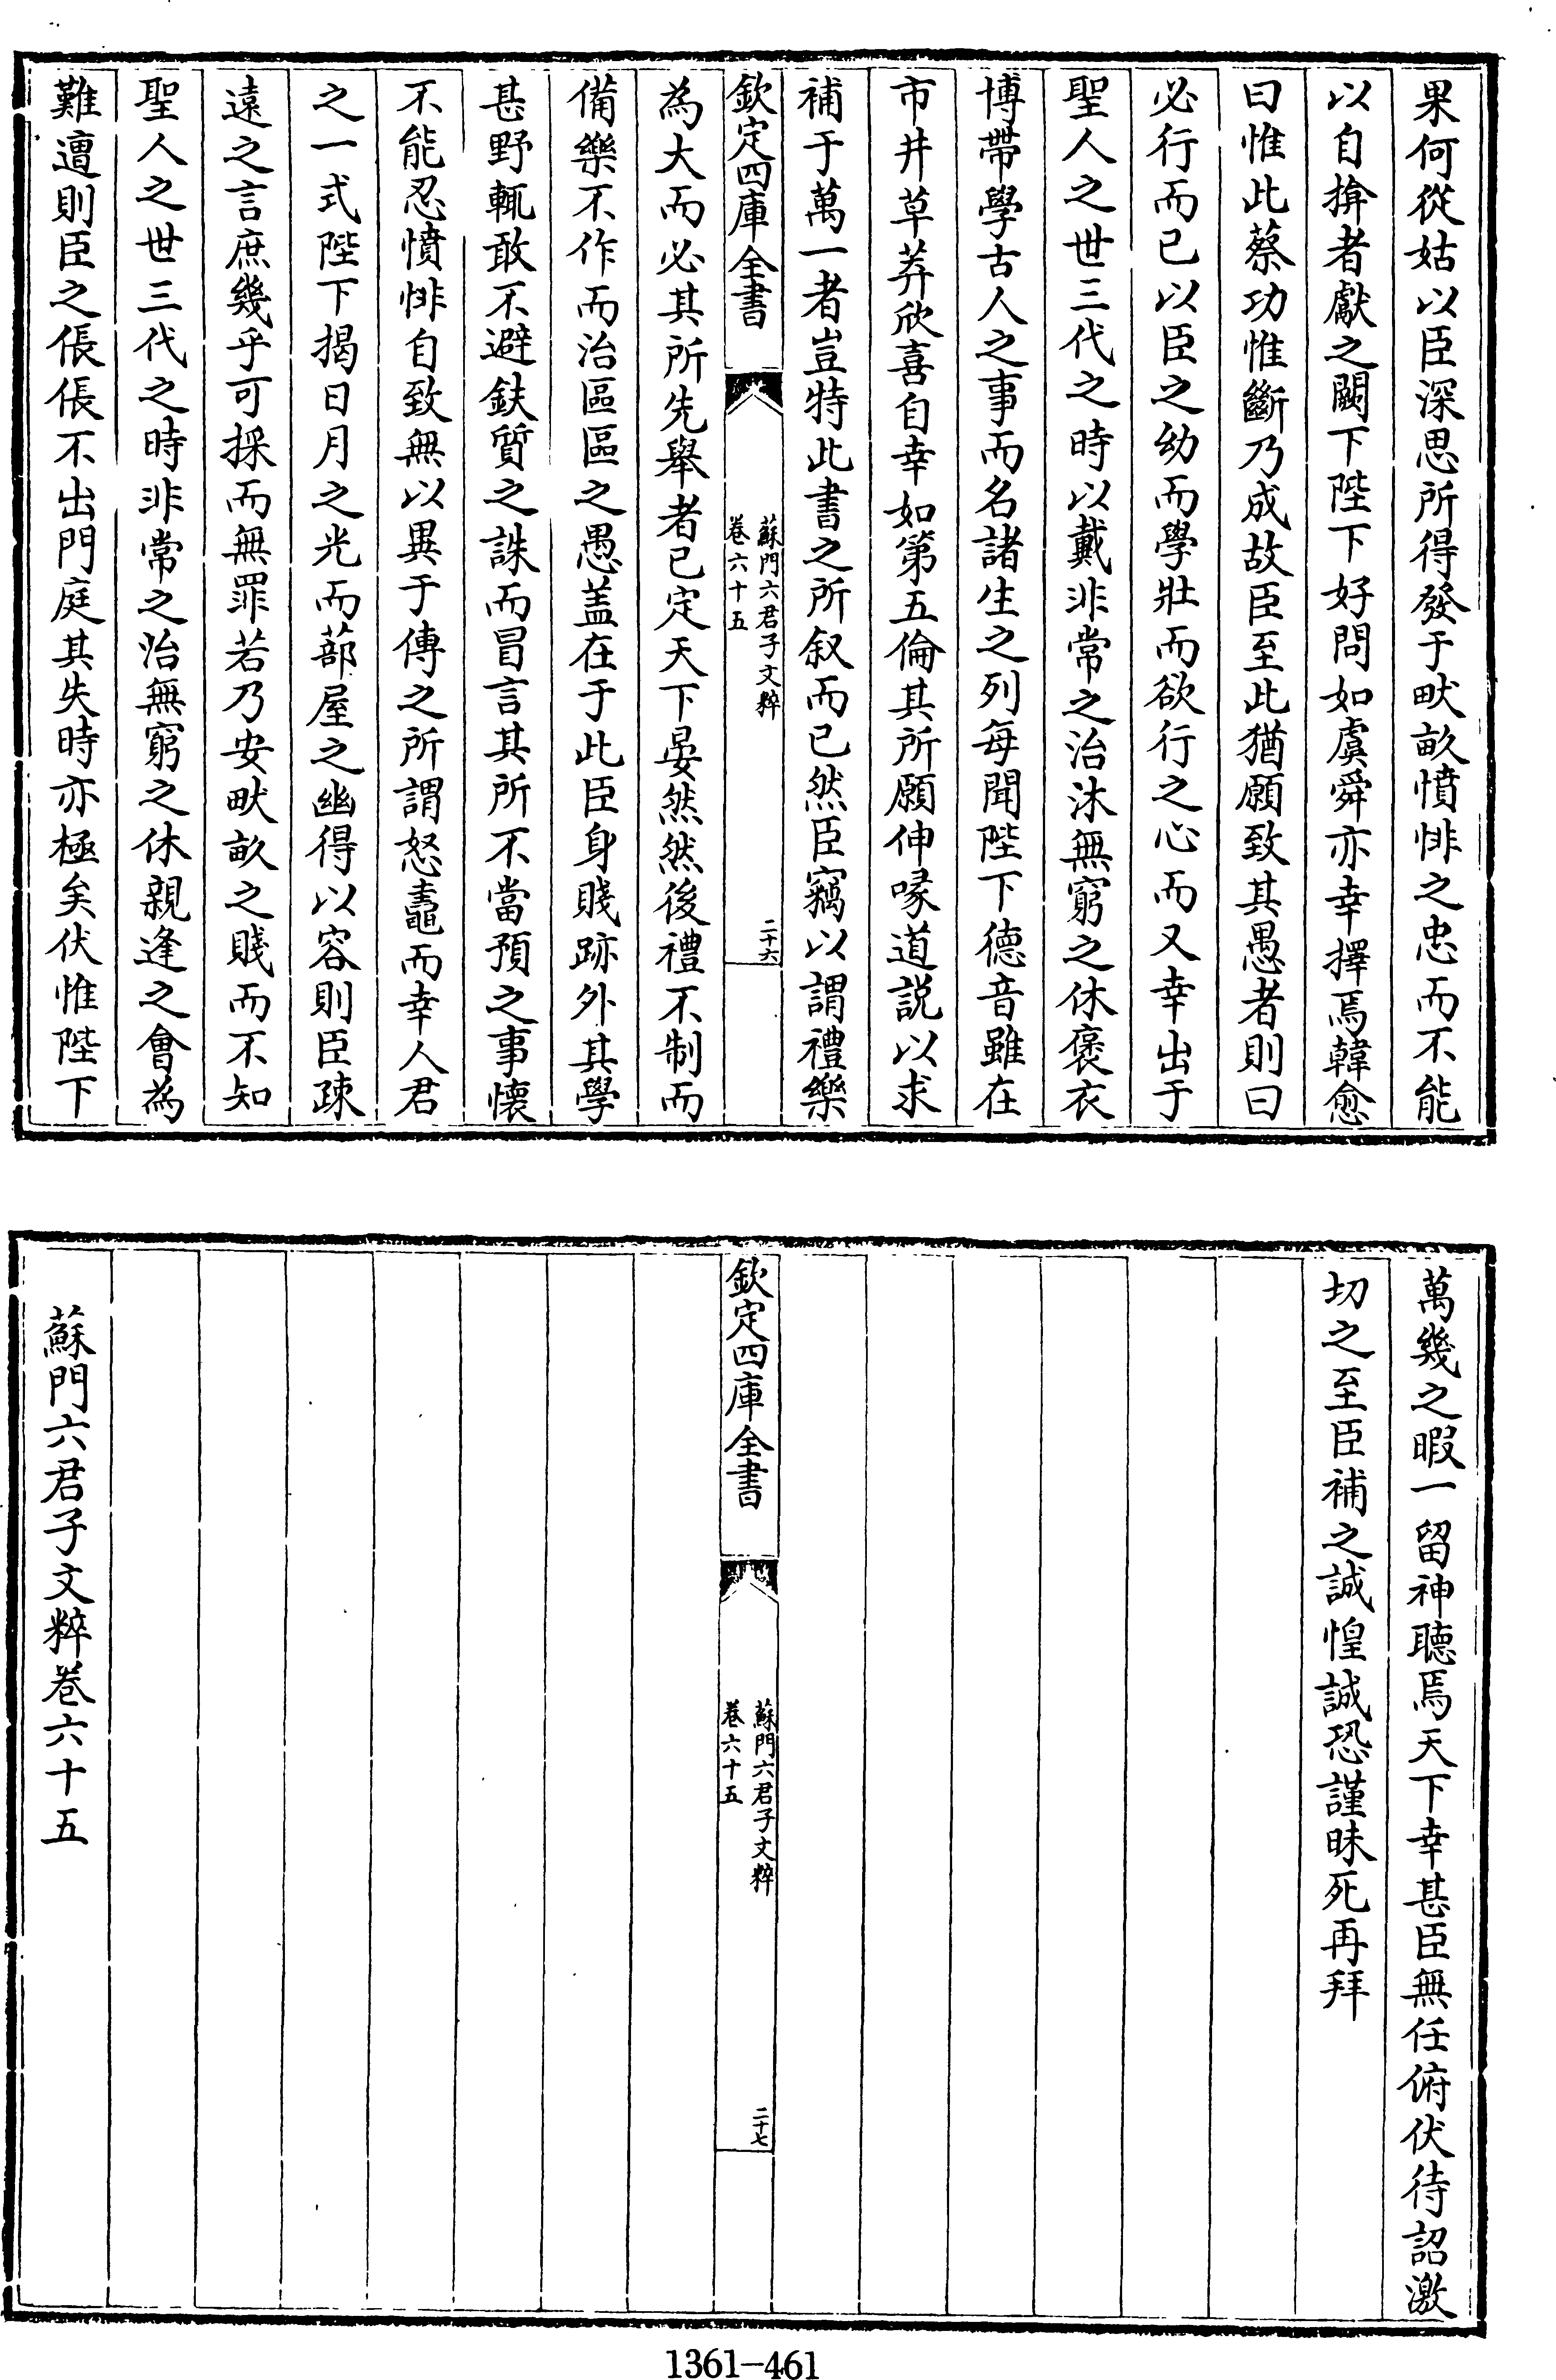 果何從姑以臣深思所得發于畎畝憤悱之忠而不能
以自揜者獻之闕下陛下好問如虞舜亦幸擇焉韓愈
曰惟此蔡功惟斷乃成故臣至此猶願致其愚者則曰
必行而已以臣之幼而學壯而欲行之心而又幸出于
聖人之世三代之時以戴非常之治沐無窮之休褒衣
博帶學古人之事而名諸生之列每聞陛下德音雖在
市井草莽欣喜自幸如第五倫其所願伸喙道説以求
補于萬一者豈特此書之所叙而已然臣竊以謂禮樂
欽定四庫全書
蘇門六君子文粹
卷六十五
二十六
為大而必其所先舉者已定天下晏然然後禮不制而
備樂不作而治區區之愚盖在于此臣身賤跡外其學
甚野輒敢不避鈇質之誅而冒言其所不當預之事懐
不能忍憤悱自致無以異于傳之所謂怒鼃而幸人君
之一式陛下揭日月之光而蔀屋之幽得以容則臣疎
遠之言庶幾乎可採而無罪若乃安畎畝之賤而不知
聖人之世三代之時非常之治無窮之休親逢之會為
難遭則臣之倀倀不出門庭其失時亦極矣伏惟陛下
萬幾之暇一留神聽焉天下幸甚臣無任俯伏待詔激
切之至臣補之誠惶誠恐謹昧死再拜
欽定四庫全書
蘇門六君子文粹
卷六十五
二十七
蘇門六君子文粹卷六十五
1361-461